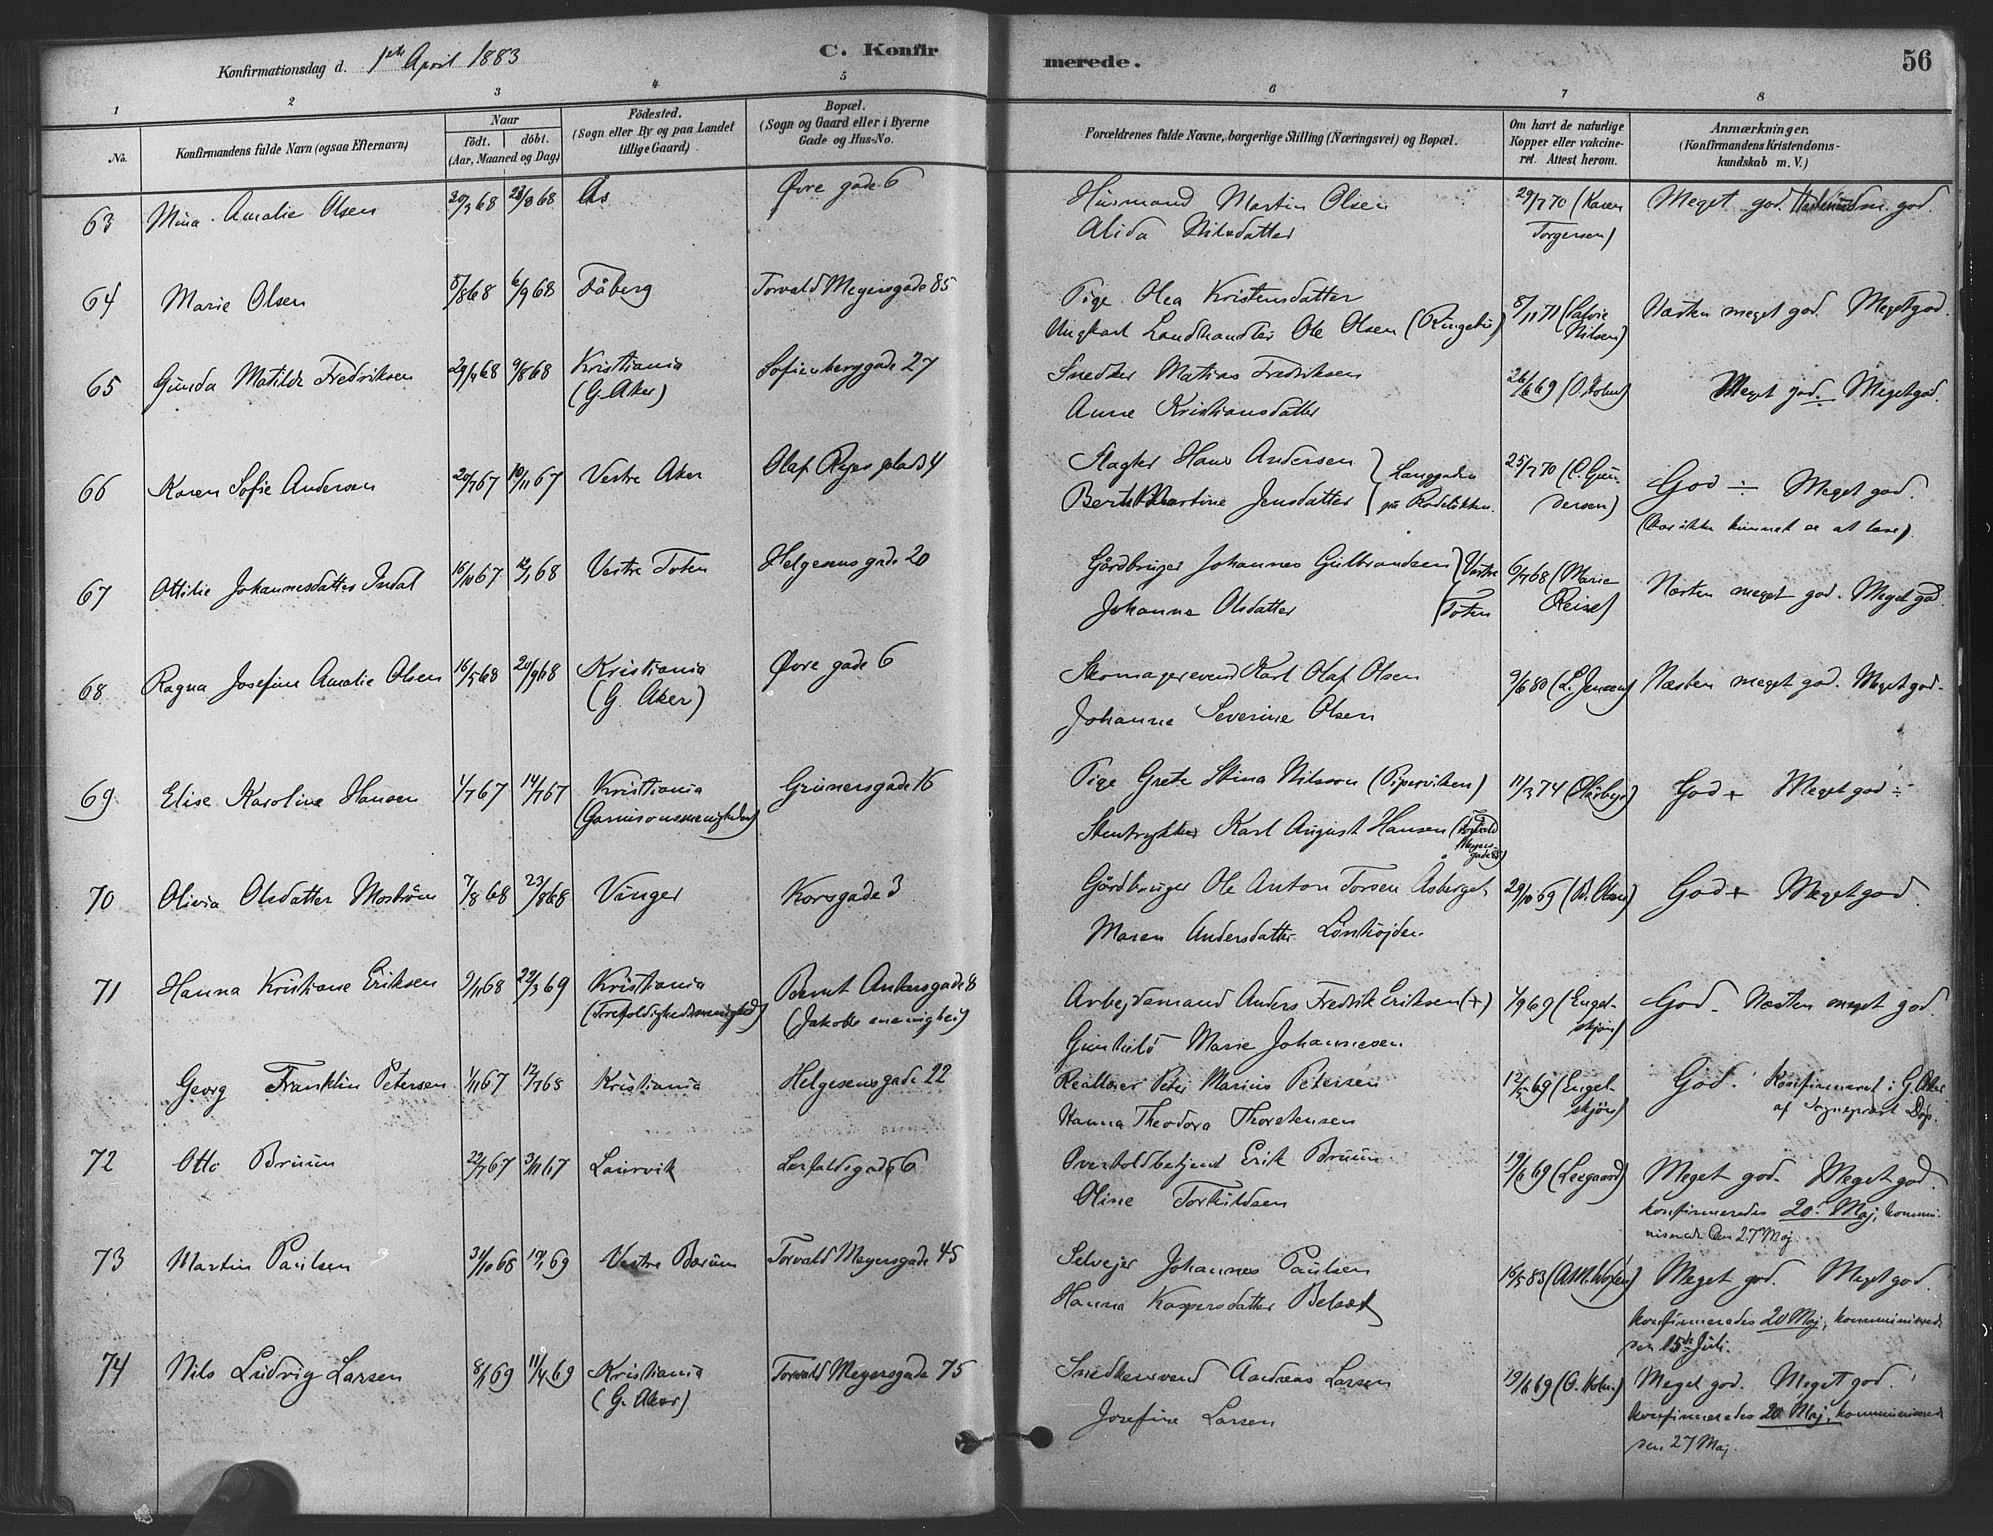 Konfirmationsdag d. 1ste April 1883
C. Konfirmerede.
56
1 2 3 4 5 6 7 8
No.
Konfirmandens fulde Navn (ogsaa Efternavn)
Naar født. døbt. (Aar, Maaned og Dag)
Födested. (Sogn eller By og paa Landet tillige Gaard)
Bopæl. (Sogn og Gaard eller i Byerne Gade og Hus-No.
Forældrenes fulde Navne, borgerlige Stilling (Næringsvei) og Bopæl.
Om havt de naturlige Kopper eller vakcineret. Attest herom.
Anmærkninger. (Konfirmandens Kristendomskundskab m. V.)
63 Mina Amalie Olsen 20/3 68 23/8 68 Ås Øvre gade 6 Husmand Martin Olsen 29/7 70 (Karen Meget god. m. god.
Alida Nilsdatter Torgersen)
64 Marie Olsen 5/8 68 6/9 68 Fåberg Torvald Meyersgade 85 Pige Olea Kristensdatter
Ungkarl Landhandler Ole Olsen (Ringebu) 8/11 71 Nilsen) Næsten meget god. Meget god.
65 Gunda Matilde Fredriksen 29/4 68 9/8 68 Kristiania Sofienberggade 27 Snedker Matias Fredriksen
(G. Aker) Anne Kristiansdatter 26/6 69 (O. Holm) Meget god ÷ Meget god.
66 Karen Sofie Andersen 20/7 67 10/11 67 Vestre Aker Olaf Ryes plads 4 Slagter Hans Andersen Langgaden 25/7 70 (C. Gun-
Martine Jensdatter på Rodeløkken. dersen) God ÷ Meget god.
(har ikke kunnet se at læse)
67 Ottilie Johannesdatter Indal 16/10 67 12/1 68 Vestre Toten Helgesens gade 20 Gårdbruger Johannes Gulbrandsen Vestre 6/7 68 (Marie
Johanne Olsdatter Toten Reise) Næsten meget god. Meget god.
68 Ragna Josefine Amalie Olsen 16/5 68 20/9 68 Kristiania Øvre gade 6 Skomagersvend Karl Olaf Olsen
(G. Aker) Johanne Severine Olsen 9/6 80 (L. Jensen) Næsten meget god. Meget god.
69 Elise Karoline Hansen 1/7 67 14/7 67 Kristiania Grünersgade 16 Pige Grete Stina Nilsson (Pipervicken) 11/3 74 God + Meget god ÷
(Garnisonsmenigheden) Stentrykker Karl August Hansen (Torvald Meyers-gade 85)
70 Olivia Olsdatter Moström 7/8 68 23/8 68 Vinger Korsgade 3 Gårdbruger Ole Anton Torsen Åsberget 29/10 69 God + Meget god.
Maren Andersdatter Lönhöjden
71 Hanna Kristiane Eriksen 9/11 68 22/3 69 Kristiania Bernt Ankersgade 8 Arbejdsmand Anders Fredrik Eriksen (+) 1/9 69 (Engel- God. Næsten meget god.
(Trefoldighedsmenighed) (Jakobs menighed) skjøn)
Marie Johannesen
Georg Franklin Petersen 1/11 67 12/7 68 Kristiania Helgesensgade 22 Peter Marius Petersen 12/5 69 (Engel- God. Konfirmeret i G. Aker
Hanna Theodora Thorstensen skjøn) af Sogneprest Døp.
72 Otto Bruun 22/7 67 3/11 67 Laurvik 6 Overtoldbetjent Erik Bruun
Oline Torkildsen 19/6 69 (Leegaard) Meget god. Meget god.
konfirmeredes 20. Maj, kommuni-
niserede den 27 Maj.
73 Martin Paulsen 31/10 68 69 Vestre Bærum Torvald Meyersgade 45 Selvejer Johannes Paulsen
Hanna Kaspersdatter Belset 16/5 83 Meget god. Meget god.
konfirmeredes 20 Maj, kommunicerede
den 15de Juli.
74 Nils Ludvig Larsen 8/1 69 11/4 69 Kristiania Torvald Meyersgade 75 Snedkersvend Andreas Larsen
(G. Aker) Josefine Larsen 19/6 69 (O. Holm.) Meget god. Meget god.
konfirmeredes 20 Maj, kommunicerede
den 27 Maj.